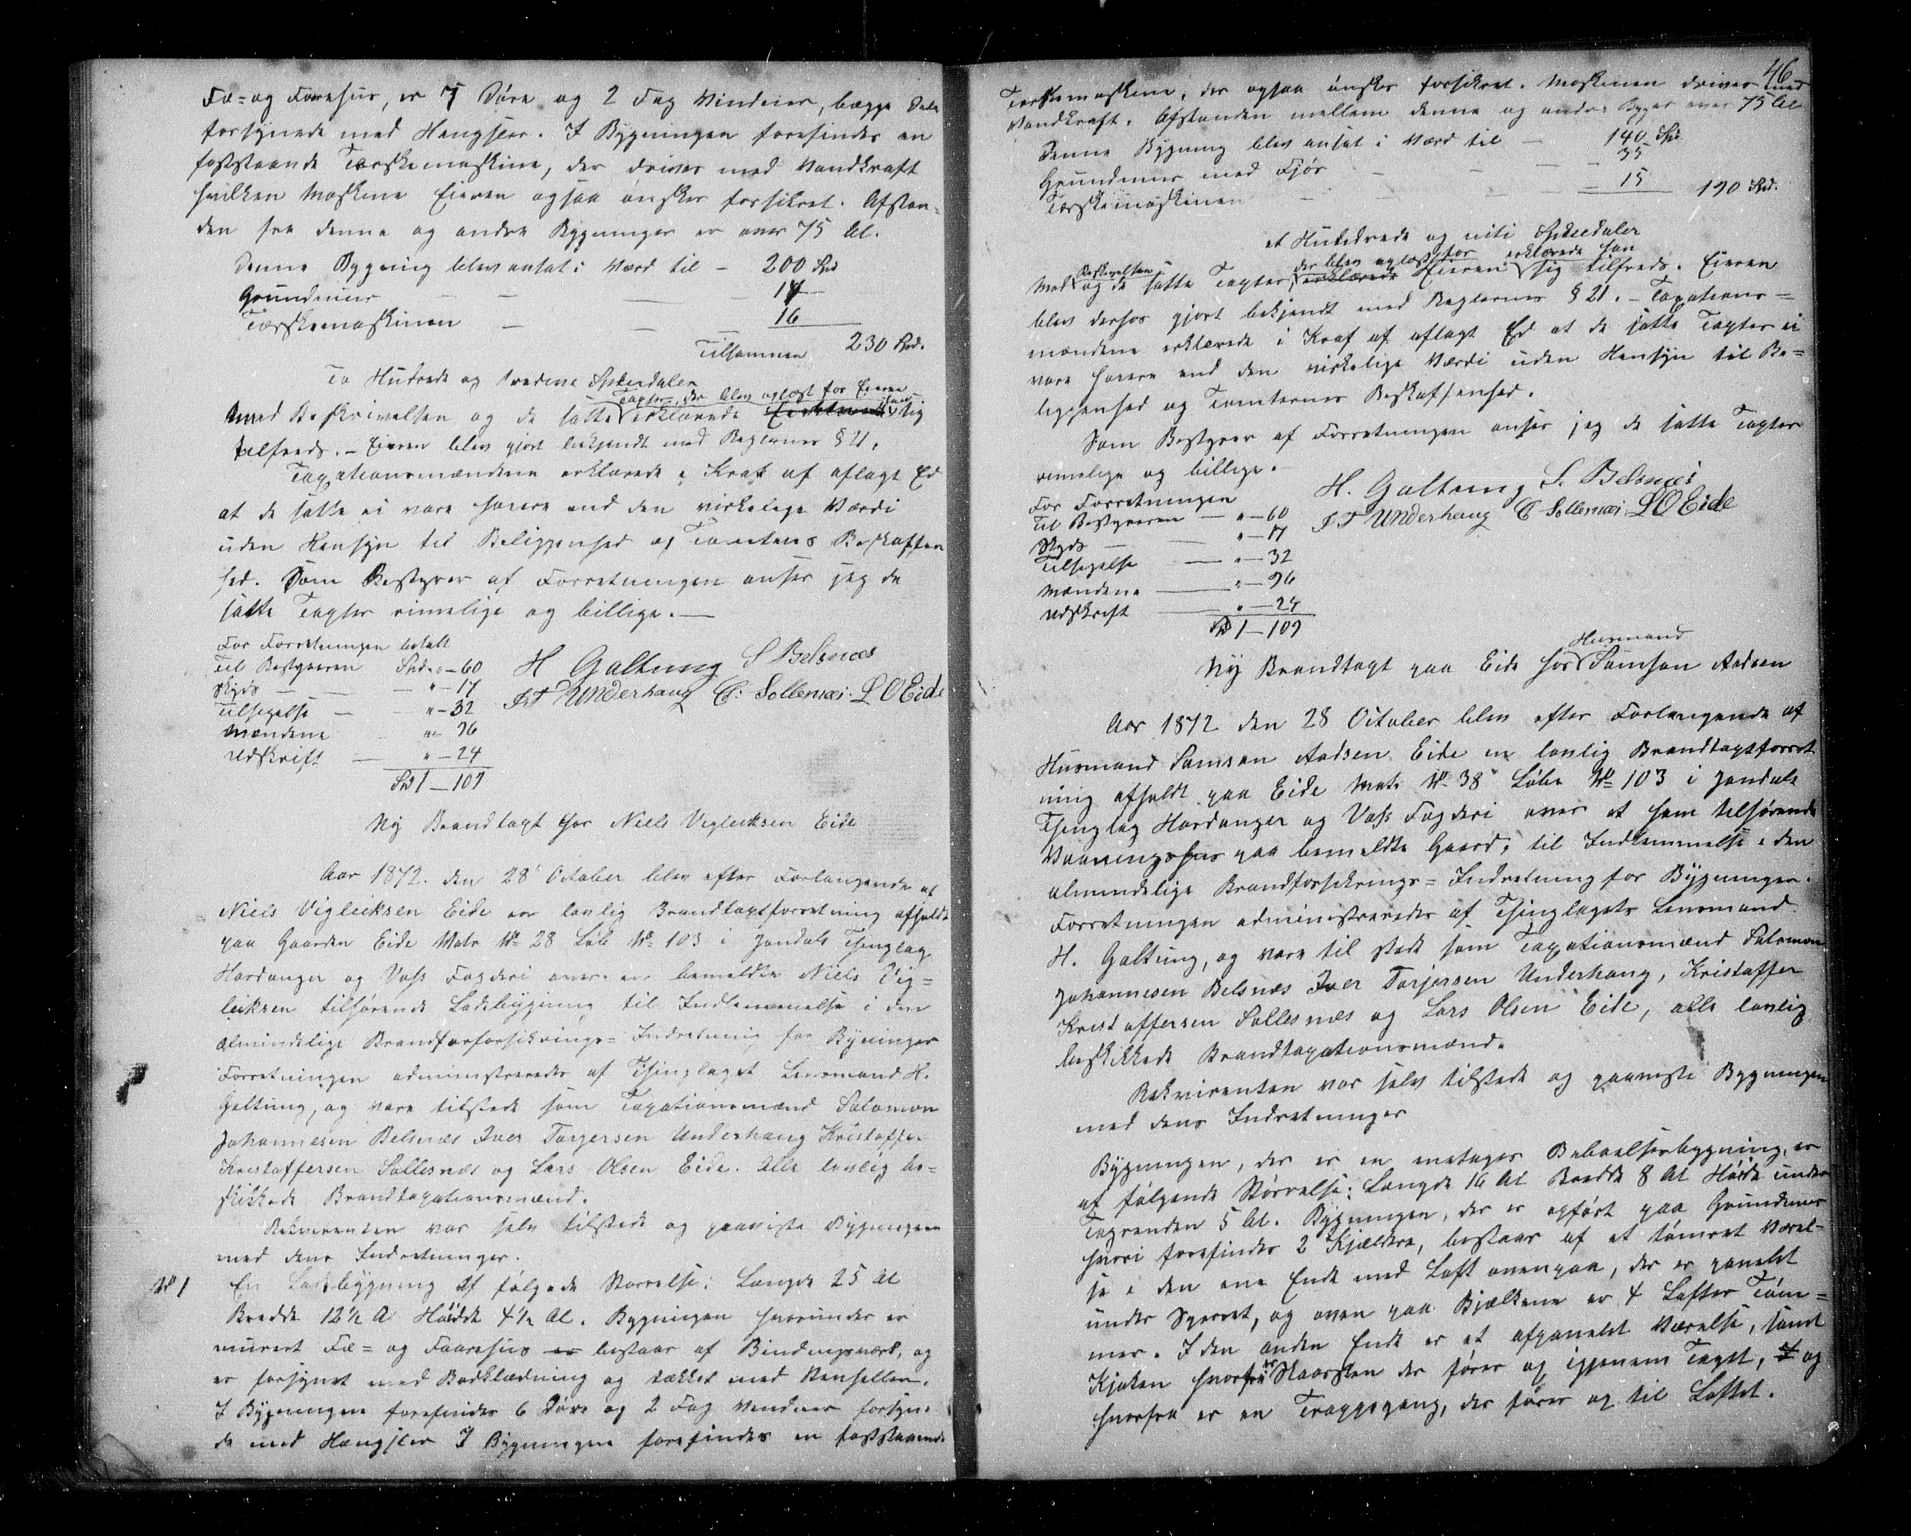 Fæ- og Foorehus, er 7 Døre og 2 Fag Vinduer, begge Dele
forsynede med Hengsler. I Bygningen forefindes en
faststaaende Tærskemaskine, der drives med Vandkraft
hvilken Maskine Eieren ogsaa ønsker forsikret. Afstan-
den fra denne og andre Bygninger er over 75 Al.
Denne Bygning blev ansat i Værd til – 200 Spd
Grundmur – – 14
Tærskemaskinen – – 16
Tilsammen 230 Spd.
To Hudrede og Tredive Spesiedaler
Taxter, der blev oplæst for Eieren
Med Beskrivelsen og de satte erklærede han sig
tilfreds. – Eieren blev gjort bekjendt med Reglernes § 21.
Taxationsmændene erklærede i Kraf af aflagt Ed
at de satte ei vare høiere end den virkelige Værdi
uden Hensyn til Beliggenhed og Tomtens Beskaffen
hed. Som Bestyrer af Forretningen anser jeg de
satte Taxter rimelige og billige. –
For Forretningen betalt
Til Bestyreren Spd. " – 60
Skyds – – " – 17
Tilsigelse – – " – 32
Mændene – " – 96
Udskrift – " – 24
Spd 1 – 109
H Galtung S Belsnæs
I T Underhaug C. Sollesnæs. L O Eide
Ny Brandtaxt hos Niels Vigleiksen Eide
Aar 1872. den 28 October blev efter Forlangende af
Niels Vigleiksen Eide en lovlig Brandtaxtforretning afholdt
paa Gaarden Eide Matr No 28 Løbe No 103 i Jondals Thinglag
Hardanger og Voss Fogderi over en bemeldte Niels Vig-
leiksen tilhørende Ladebygning til Indlemmelse i den
almindelige Brandforforsikrings-Indretning for Byninger
Forretningen administreredes af Thinglaget Lensmand H.
Galtung, og vare tilstede som Taxationsmænd Salomon
Johannesen Belsnæs Iver Torjersen Underhaug Kristoffer
Kristoffersen Sollesnæs og Lars Olsen Eide. Alle lovlig be-
skikkede Brandtaxationsmænd.
Rekvirenten var selv tilstede og paaviste Bygningen
med dens Indretninger.
No 1 En Ladebygning af følgede Størrelse: Længde 25 Al
Bredde 12½ Al Høide 4½ Al. Bygningen hvorunder er
muret Fæ- og Faarehus bestaar af Bindingsverk, og
er forsynet med Bordklædning og tækket med Stenheller.
I Bygningen forefindes 6 Døre og 2 Fag Vinduer forsyn-
de med Hængsler I Bygningen forefindes en faststaaende
46
Tærskemaskine, der ogsaa ønskes forsikret. Maskinen drives med
Vandkraft. Afstanden mellem denne og andre Byger over 75 Al
Denne Bygning blev ansat i Værd til – 140 Spd
Grundmur med Fjøs – – – 35
Tærskemaskinen – – – 15 190 Spd.
et Hundrede og niti Spesiedaler
Beskrivelsen der blev oplæst for erklærede han
Med og de satte Taxter, erklærede Eieren sig tilfreds. Eieren
blev derhos gjort bekjendt med Reglernes § 21. – Taxations-
mændene erklærede i Kraf af aflagt Ed at de satte Taxter ei
vare høiere end den virkelige Værdi uden Hensyn til Be-
liggenhed og Tomternes Beskaffenhed.
Som Bestyrer af Forretningen anser jeg de satte Taxter
rimelige og billige.
For Forretningen
Til Bestyreren – " – 60
Skyds – " – 17
Tilsigelse – " – 32
Mændene – " – 96
Udskrift – " – 24
Spd 1 – 109
H. Galtung S. Belsnæs
I T Underhaug C. Sollesnæs. L O Eide
Husmand
Ny Brandtaxt paa Eide hos Samson Aadsen
Aar 1872 den 28 October blev efter Forlangende af
Husmand Samson Aadsen Eide en lovlig Brandtaxtforret
ning afholdt paa Eide Matr No 38 Løbe No 103 i Jondals
Thinglag Hardanger og Voss Fogderi over et ham tilhørende
Vaaningshus paa bemeldte Gaard, til Indlemmelse i den
almindelige Brandforsikrings-Indretning for Bygninger.
Forretningen administreredes af Thinglagets Lensmand
H. Galtung, og vare til stede som Taxationsmænd Salomon
Johannesen Belsnæs Iver Torjersen Underhaug, Kristoffer
Kristoffersen Sollesnæs og Lars Olsen Eide, alle lovlig
beskikkede Brandtaxationsmænd.
Rekvirenten var selv tilstede og paaviste Bygningen
med dens Indretninger
Bygningen, der er en enetages Beboelsesbygning, er
af følgende Størrelse: Længde 16 Al Bredde 8 Al Høide under
Tagrenden 5 Al. Bygningen, der er opført paa Grundmur
hvori forefindes 2 Kjældere, bestaar af et tømret Værel-
se i den ene Ende med Loft ovenpaa, der er panelet
under Sperret, og oven paa Bjælkene er 4 Lofter Tøm-
mer. I den anden Ende er et afpanelet Værelse, samt
Kjøken hvorfra er Skorsten der fører op igjennem Taget, og
hvorfra er en Trappegang, der fører op til Loftet.